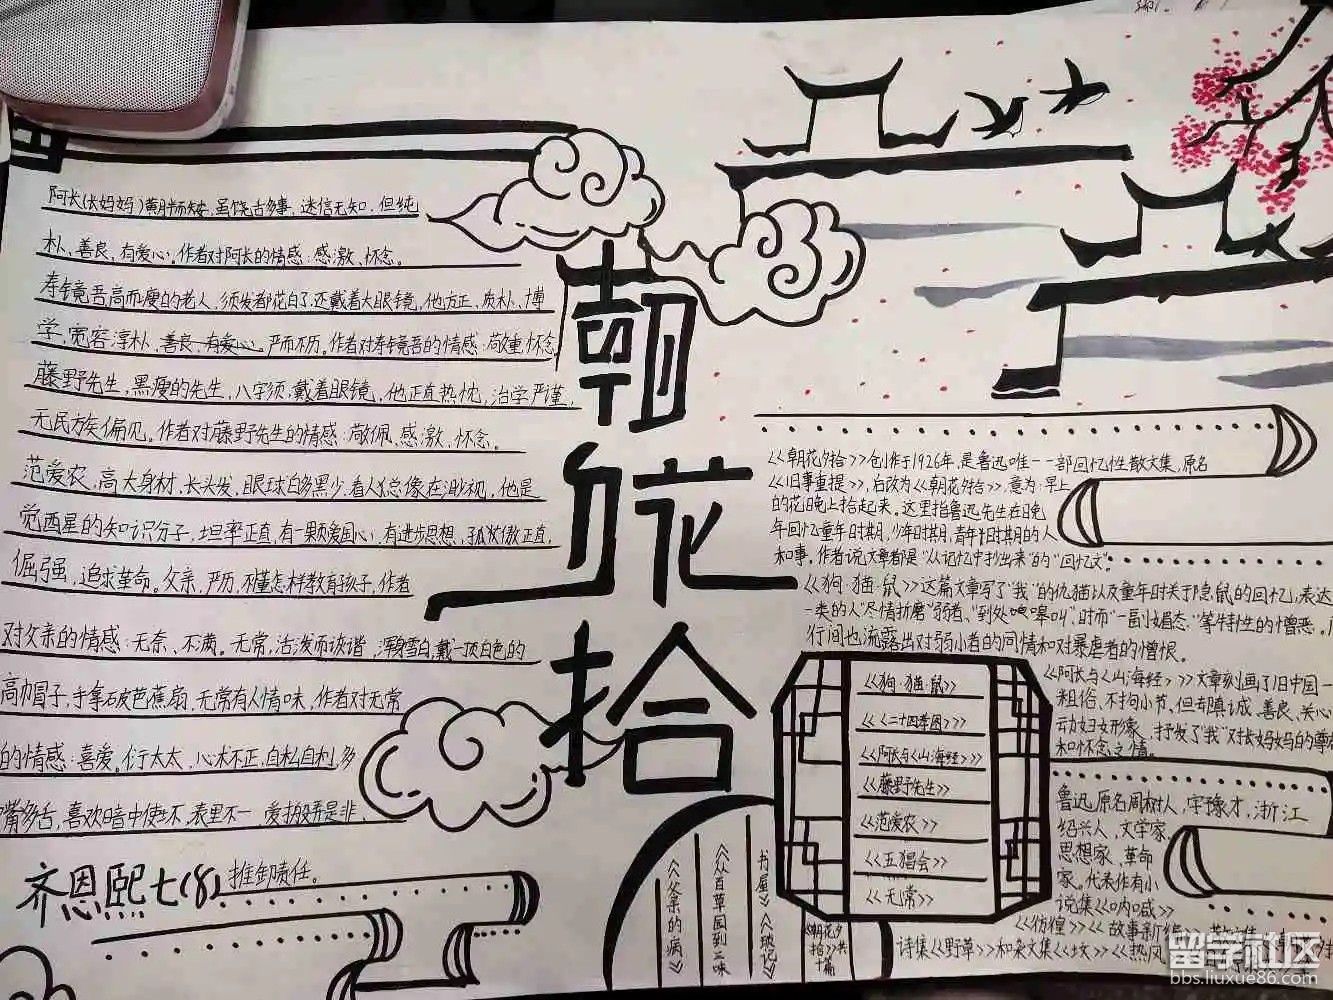 阿长(长妈妈)黄胖而矮,虽饶舌多事,迷信无知,但纯
朴、善良、有爱心。作者对阿长的情感:感激、怀念。
寿镜吾高而瘦的老人,须发都花白了,还戴着大眼镜,他方正,质朴、博
学,宽容淳朴、善良、有爱心,严而不厉。作者对寿镜吾的情感:敬重、怀念
藤野先生,黑瘦的先生,八字须,戴着眼镜,他正直热忱,治学严谨,
无民族偏见。作者对藤野先生的情感:敬佩、感激、怀念。
范爱农,高大身材,长头发,眼球白多黑少,看人总像在渺视,他是
觉西星的知识分子,坦率正直,有一颗爱国心,有进步思想、孤傲正直,
倔强,追求革命。父亲,严厉,不懂怎样教育孩子,作者
对父亲的情感:无奈、不满。无常,活泼而诙谐,浑身雪白,戴一顶白色的
高帽子,手拿破芭蕉扇,无常有人情味,作者对无常
的情感:喜爱。衍太太,心术不正,自私自利,多
嘴多舌,喜欢暗中使坏,表里不一 爱搬弄是非、
推卸责任。
齐恩熙七(8)
朝花夕拾
《朝花夕拾》创作于1926年,是鲁迅唯一一部回忆性散文集,原名
《旧事重提》,后改为《朝花夕拾》,意为:早上
的花晚上拾起来。这里指鲁迅先生在晚
年回忆童年时期,少年时期,青年时期的人
和事。作者说文章都是“从记忆中抄出来”的“回忆文”。
《狗·猫·鼠》这篇文章写了“我”的仇猫以及童年时关于隐鼠的回忆;表达
一类的人“尽情折磨”弱者、“到处嗥叫”、时而“一副媚态”等特性的憎恶,
行间也流露出对弱小者的同情和对暴虐者的憎恨。
《阿长与《山海经》》文章刻画了旧中国一
粗俗、不拘小节,但却真诚、善良、关心
动妇女形象,抒发了“我”对长妈妈的尊
和怀念之情。
《狗·猫·鼠》
《二十四孝图》
《阿长与《山海经》》
《藤野先生》
《范爱农》
《五猖会》
《无常》
《父亲的病》
《从百草园到三味
书屋》《琐记》
《朝花夕
拾》共
十篇
鲁迅,原名周树人,字豫才,浙江
绍兴人,文学家
思想家、革命
家。代表作有小
说集《呐喊》
《彷徨》《故事新编》
诗集《野草》和杂文集《坟》《热风
留学社区
bbs.liuxue86.com